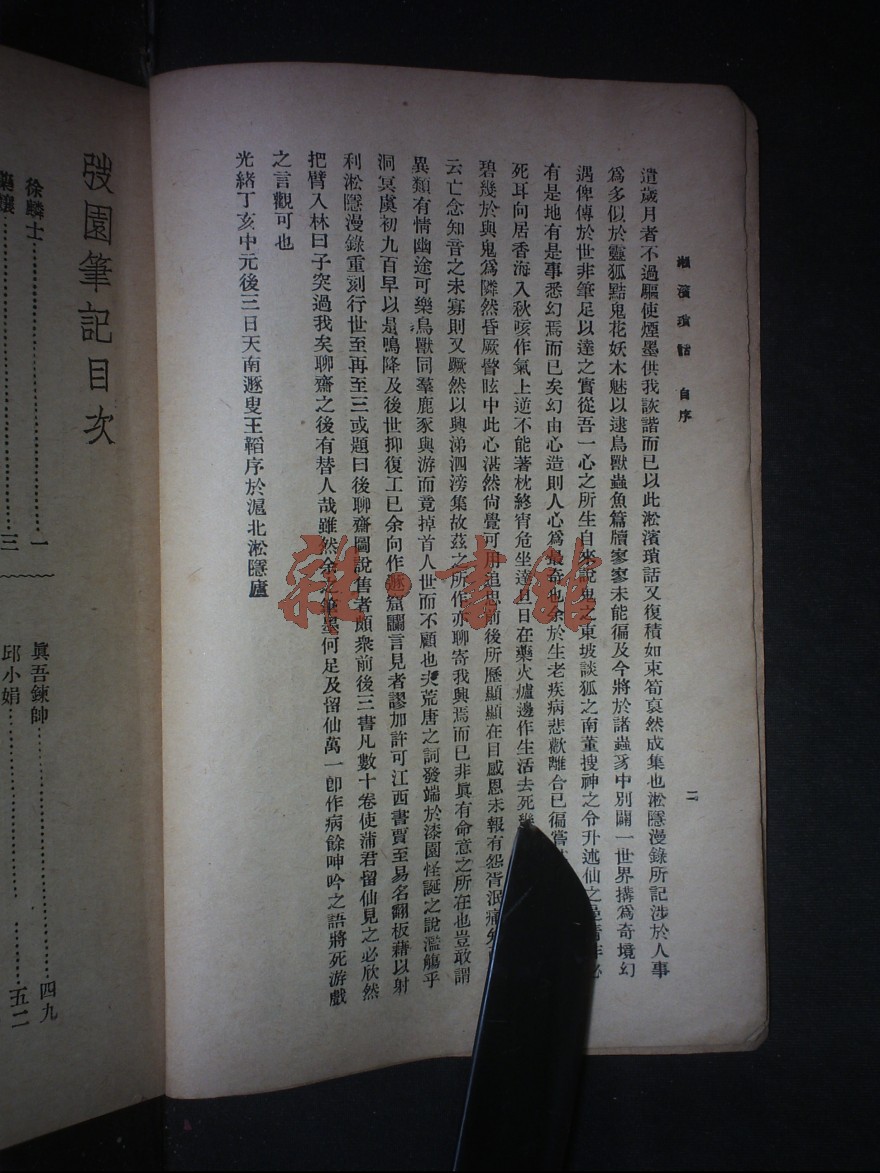 淞濱瑣話　自序
二
遣歲月者不過驅使煙墨供我詼諧而已以此淞濱瑣話又復積如束筍裒然成集也淞隱漫錄所記涉於人事
爲多似於靈狐黠鬼花妖木魅以逮鳥獸蟲魚篇牘寥寥未能徧及今將於諸蟲豸中別闢一世界搆爲奇境幻
遇俾傳於世非筆足以達之實從吾一心之所生自來說鬼之東坡談狐之南董搜神之令升述仙之
有是地有是事悉幻焉而已矣幻由心造則人心爲最奇也余於生老疾病悲歡離合已徧嘗
死耳向居香海入秋咳作氣上逆不能著枕終宵危坐達旦日在藥火爐邊作生活去死
碧幾於與鬼爲隣然昏厥瞀眩中此心湛然尙覺可用追思前後所歷顯顯在目感恩未報有怨胥泯痛
云亡念知音之未寡則又蹶然以興涕泗滂集故茲之所作亦聊寄我興焉而已非眞有命意之所在也豈敢謂
異類有情幽途可樂鳥獸同羣鹿豕與游而竟掉首人世而不顧也夫荒唐之詞發端於漆園怪誕之說濫觴乎
洞冥虞初九百早以是鳴降及後世抑復工已余向作遯窟讕言見者謬加許可江西書賈至易名翻板藉以射
利淞隱漫錄重刻行世至再至三或題曰後聊齋圖說售者頗衆前後三書凡數十卷使蒲君留仙見之必欣然
把臂入林曰子突過我矣聊齋之後有替人哉雖然余之筆墨何足及留仙萬一卽作病餘呻吟之語將死游戲
之言觀可也
光緒丁亥中元後三日天南遯叟王韜序於滬北淞隱廬
雜·書館
弢園筆記目次
徐麟士……一
藥孃……三
眞吾鍊師……四九
邱小娟……五二